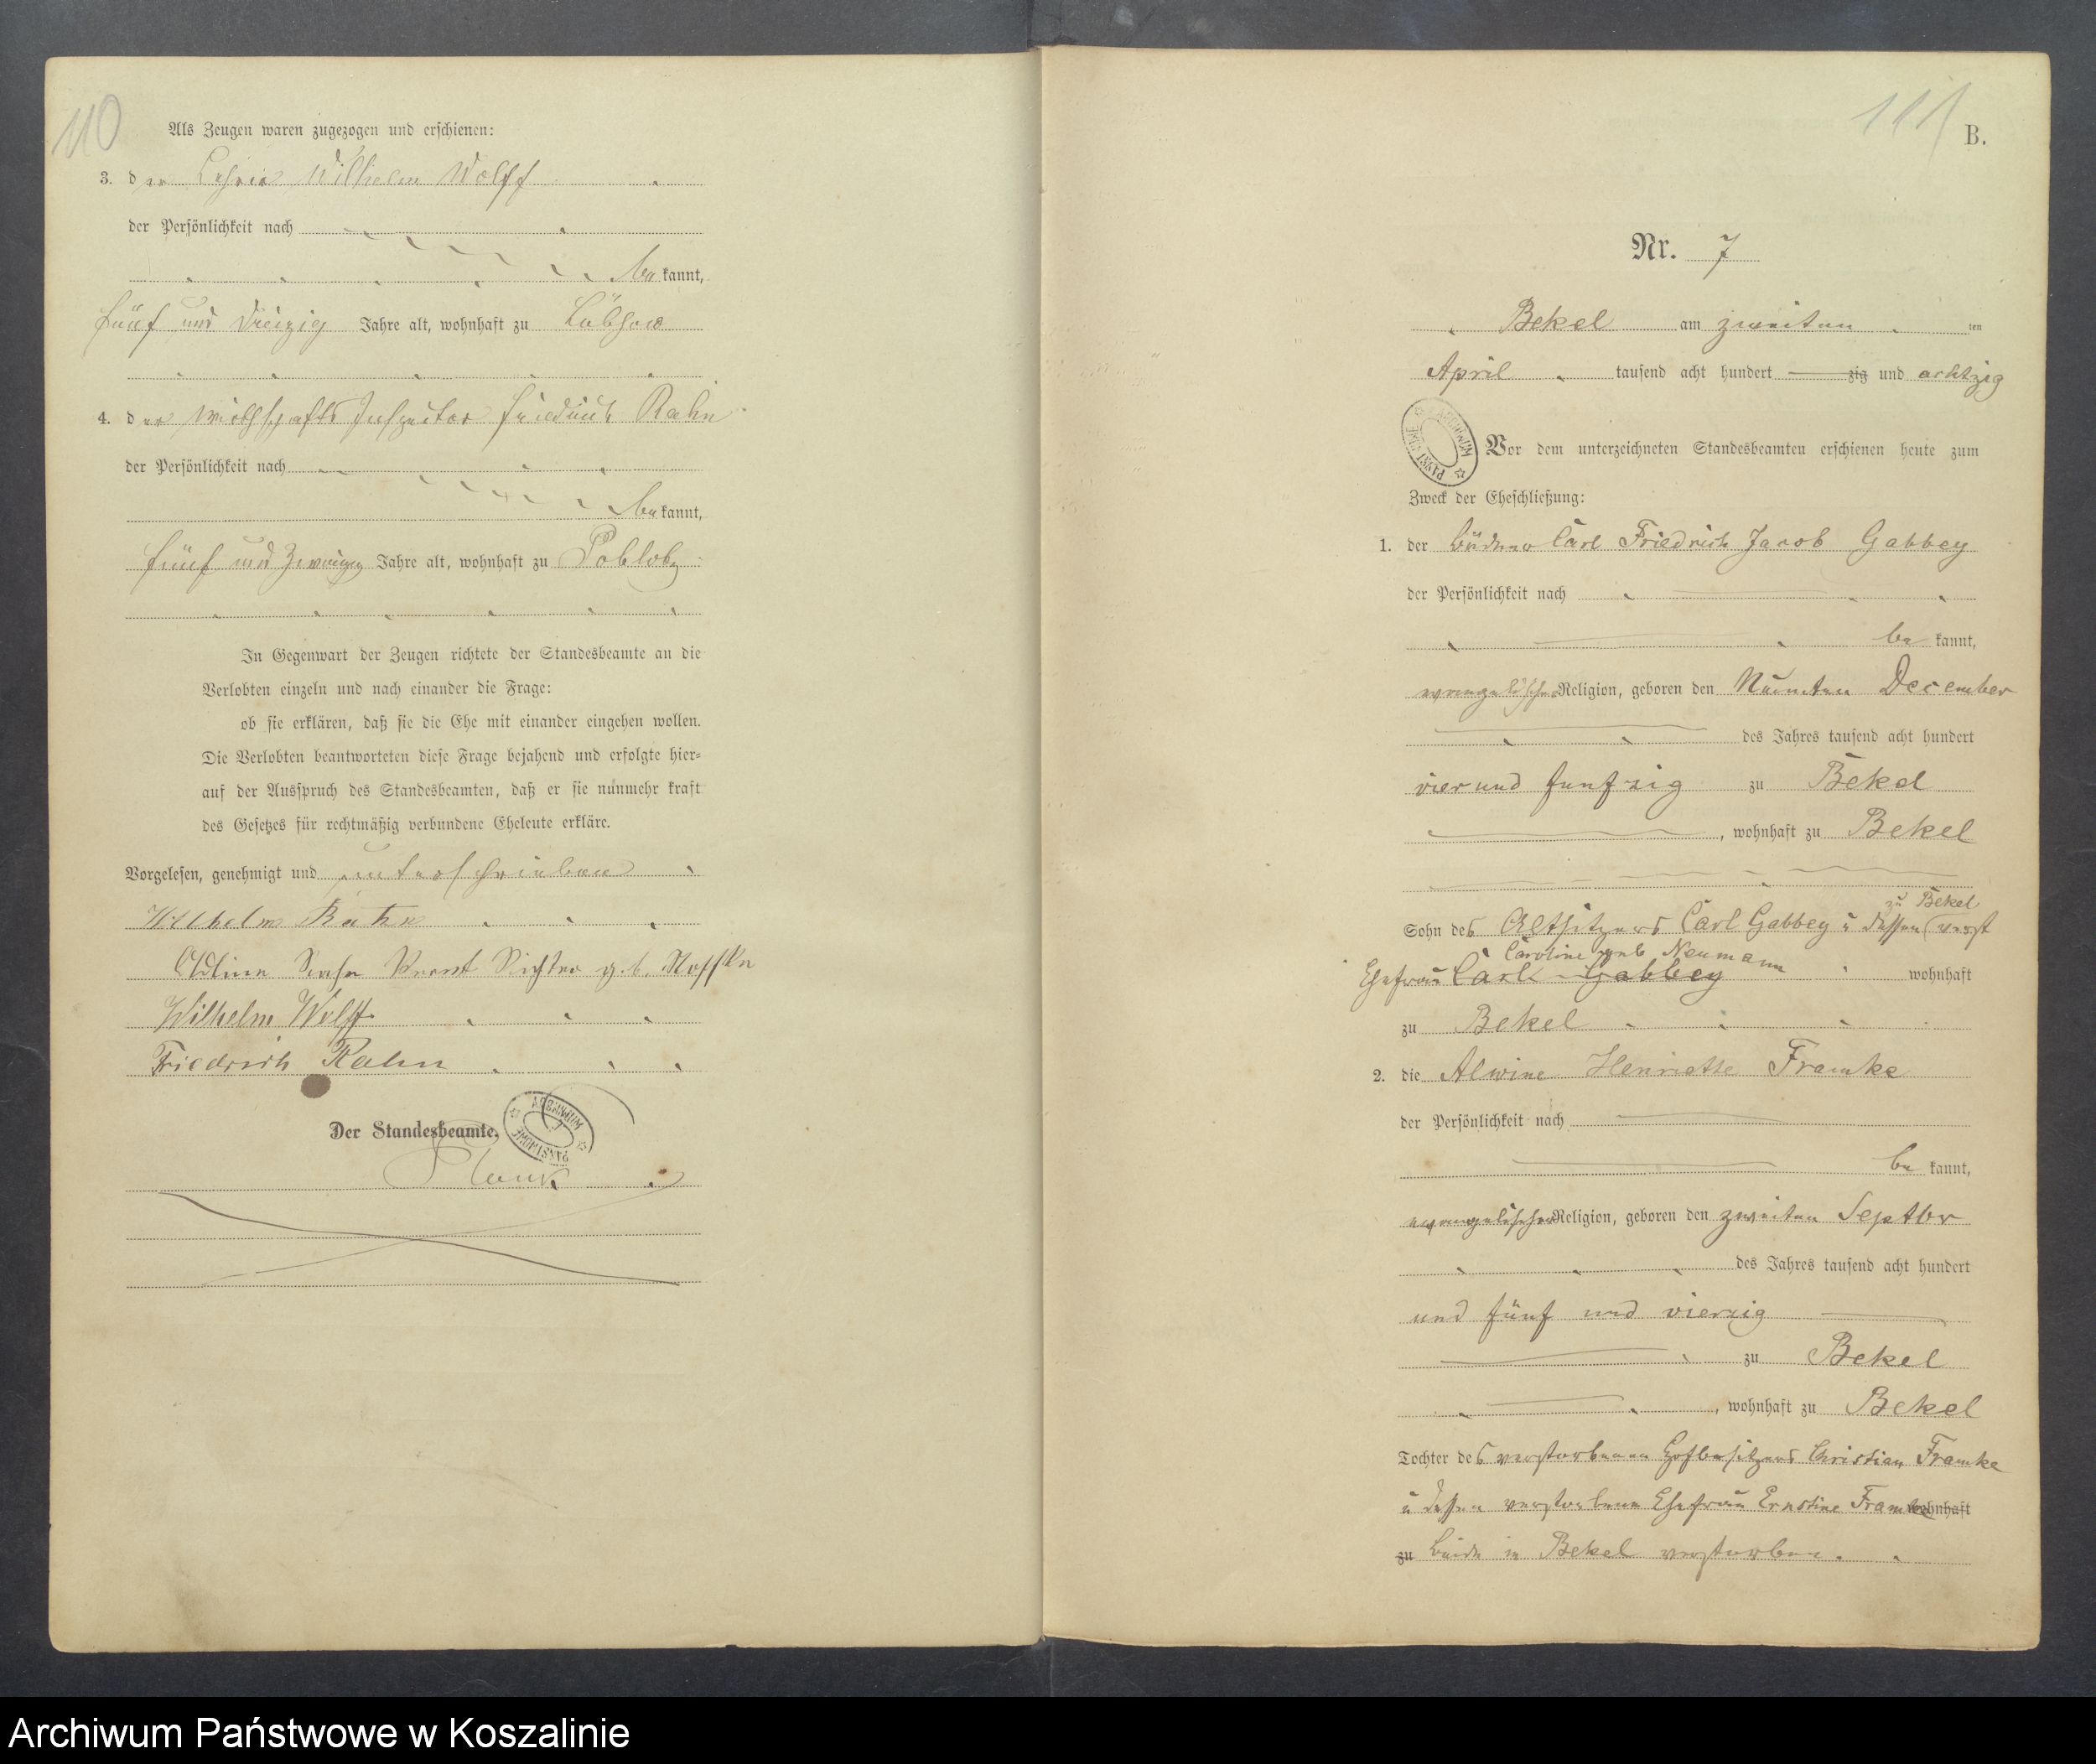 110
Als Zeugen waren zugezogen und erschienen:
3. der Lehrer Wilhelm Wolff
der Persönlichkeit nach
be kannt,
fünf und dreizig Jahre alt, wohnhaft zu Lübsow
4. der Wirthschafts Inspector Friedrich Rahn
der Persönlichkeit nach
be kannt,
fünf und zwanzig Jahre alt, wohnhaft zu Poblotz
In Gegenwart der Zeugen richtete der Standesbeamte an die
Verlobten einzeln und nach einander die Frage:
ob sie erklären, daß sie die Ehe mit einander eingehen wollen.
Die Verlobten beantworteten diese Frage bejahend und erfolgte hier=
auf der Ausspruch des Standesbeamten, daß er sie nunmehr kraft
des Gesetzes für rechtmäßig verbundene Eheleute erkläre.
Vorgelesen, genehmigt und unterschrieben
Wilhelm Rahn
Wilhelm Wolff
Friedrich Rahn
Der Standesbeamte.
ARCHIWUM PAŃSTWOWE
111
B.
Nr. 7
Bekel am zweiten ten
April tausend acht hundert zig und achtzig
ARCHIWUM PAŃSTWOWE
Vor dem unterzeichneten Standesbeamten erschienen heute zum
Zweck der Eheschließung:
1. der Büdner Carl Friedrich Jacob Gabbey
der Persönlichkeit nach
be kannt,
evangelischer Religion, geboren den Neunten December
des Jahres tausend acht hundert
vier und funfzig zu Bekel
, wohnhaft zu Bekel
zu Bekel
Sohn des Altsitzers Carl Gabbey u dessen verst
Caroline geb Neumann
Ehefrau Carl Gabbey wohnhaft
zu Bekel
2. die Alwine Henriette Framke
der Persönlichkeit nach
be kannt,
evangelischer Religion, geboren den zweiten Septbr
des Jahres tausend acht hundert
und fünf und vierzig
zu Bekel
, wohnhaft zu Bekel
Tochter des verstorbenen Hofbesitzers Christian Framke
u dessen verstorbene Ehefrau Ernstine Framke wohnhaft
zu beide in Bekel verstorben.
Archiwum Państwowe w Koszalinie